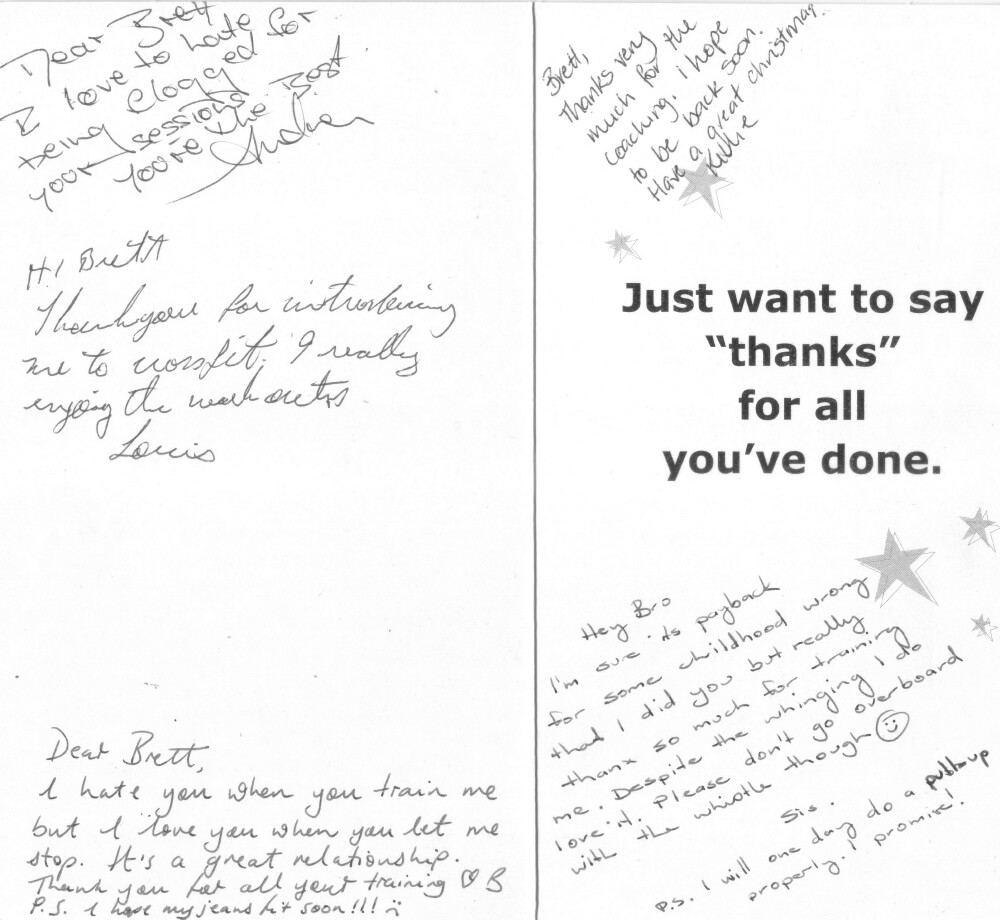 Dear Brett
I love to hate
being flogged for
your sessions
you're the Best
Hi Brett
Thankyou for introducing
me to crossfit. I really
enjoy the workouts
Louis
Dear Brett,
I hate you when you train me
but I love you when you let me
stop. It's a great relationship.
Thank you for all your training ♡ B
P.S. I hope my jeans fit soon!!! :)
Brett,
Thanks very
much for the
coaching. i hope
to be back soon.
Have a great christmas..
Kylie
Just want to say
“thanks”
for all
you’ve done.
Hey Bro
I'm sure its payback
for some childhood wrong
that I did you but really
thanx so much for training
me. Despite the whinging I do
love it. Please don't go overboard
with the whistle though ☺
Sis.
P.S. I will one day do a pushup
properly. I promise!